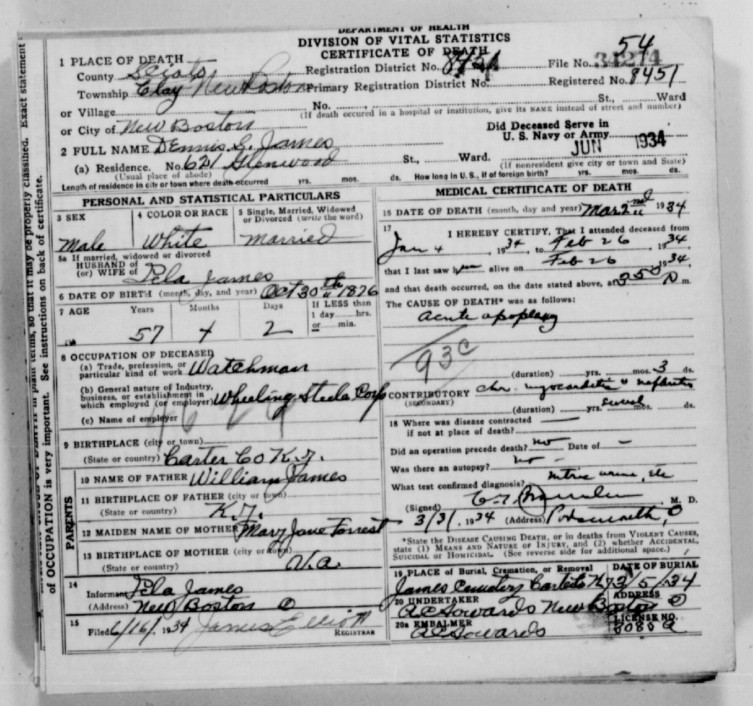 DEPARTMENT OF HEALTH
DIVISION OF VITAL STATISTICS
CERTIFICATE OF DEATH
54
1 PLACE OF DEATH
County Scioto Registration District No. File No. 34274
Township Clay New Boston Primary Registration District No. Registered No. 8451
or Village No. St., Ward
(If death occurred in a hospital or institution, give its NAME instead of street and number)
or City of New Boston
Did Deceased Serve in
U. S. Navy or Army
JUN 1934
2 FULL NAME Dennis G. James
(a) Residence. No. 621 Glenwood St., Ward.
(Usual place of abode) (If nonresident give city or town and State)
Length of residence in city or town where death occurred yrs. mos. ds. How long in U. S., if of foreign birth? yrs. mos. ds.
PERSONAL AND STATISTICAL PARTICULARS
3 SEX 4 COLOR OR RACE 5 Single, Married, Widowed
or Divorced (write the word)
Male White Married
5a If married, widowed or divorced
HUSBAND of
(or) WIFE of James
6 DATE OF BIRTH (month, day, and year) Oct 30th 1876
7 AGE Years Months Days If LESS than
1 day hrs.
or min.
57 4 2
8 OCCUPATION OF DECEASED
(a) Trade, profession, or
particular kind of work Watchman
(b) General nature of Industry,
business, or establishment in
which employed (or employer) Wheeling Steele Corp
(c) Name of employer
9 BIRTHPLACE (city or town)
(State or country) Carter Co Ky.
PARENTS
10 NAME OF FATHER William James
11 BIRTHPLACE OF FATHER (city or town)
(State or country) Ky.
12 MAIDEN NAME OF MOTHER Mary Jane Forrest
13 BIRTHPLACE OF MOTHER (city or town)
(State or country) Va.
14 Informant James
(Address) New Boston O
15 Filed 6/16/, 1934 James Elliott
REGISTRAR
MEDICAL CERTIFICATE OF DEATH
16 DATE OF DEATH (month, day and year) Mar 2nd 1934
17 I HEREBY CERTIFY, That I attended deceased from
Jan 4, 1934, to Feb 26, 1934,
that I last saw him alive on Feb 26, 1934,
and that death occurred, on the date stated above, at 350 P m.
The CAUSE OF DEATH* was as follows:
acute apoplexy
93c
(duration) yrs. mos. 3 ds.
CONTRIBUTORY chr. myocarditis & nephritis
(SECONDARY)
(duration) several yrs. mos. ds.
18 Where was disease contracted
if not at place of death?
Did an operation precede death? no Date of -
Was there an autopsy? no -
What test confirmed diagnosis? urine, etc
(Signed) M. D.
3/3/, 1934 (Address) Portsmouth, O
*State the DISEASE CAUSING DEATH, or in deaths from VIOLENT CAUSES,
state (1) MEANS AND NATURE OF INJURY, and (2) whether ACCIDENTAL,
SUICIDAL or HOMICIDAL. (See reverse side for additional space.)
19 PLACE of Burial, Cremation, or Removal DATE OF BURIAL
James Cemetery Carter Co Ky 3/5/34
20 UNDERTAKER ADDRESS
A C Sowards New Boston O
20a EMBALMER LICENSE NO.
A C Sowards 8080 A
in plain terms, so that it may be properly classified. Exact statement
of OCCUPATION is very important. See instructions on back of certificate.